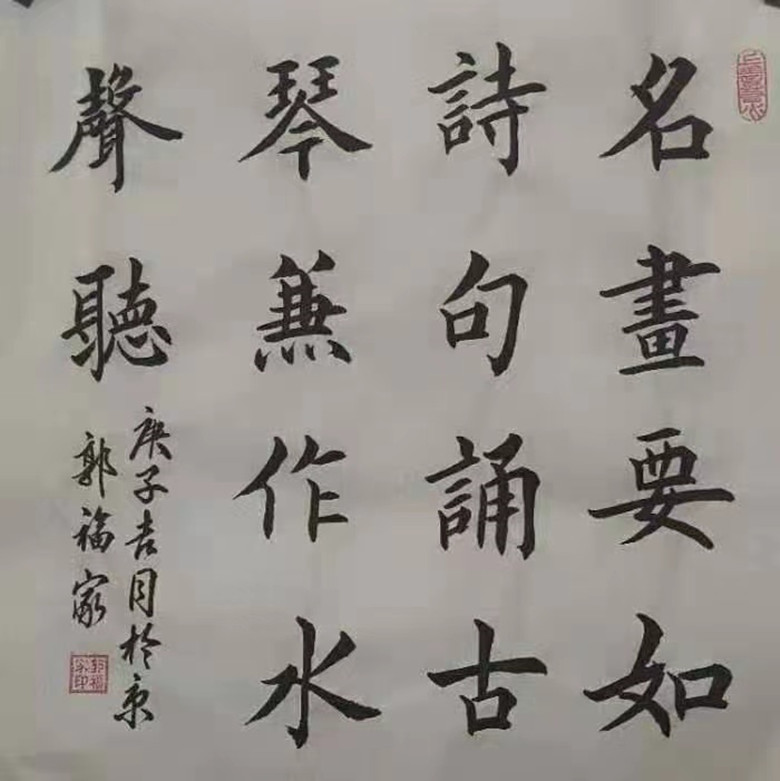 名畫要如
詩句誦古
琴蒹作水
聲聽
庚子吉月於京
郭福家